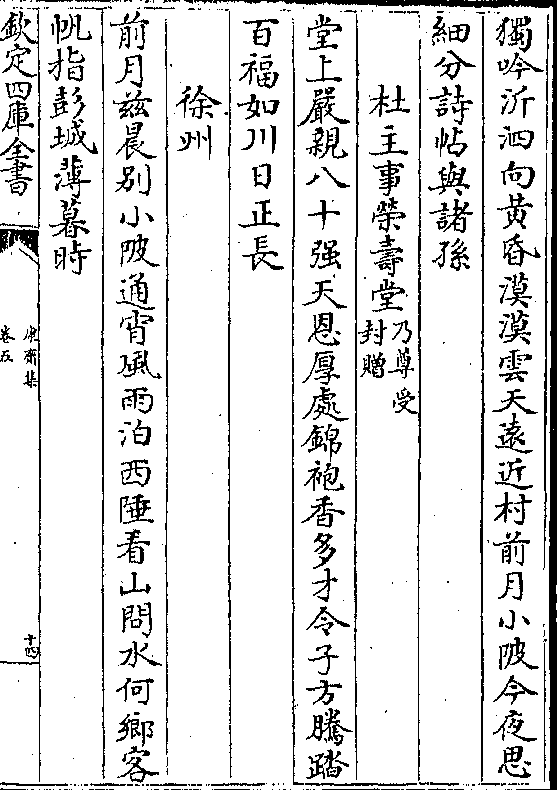 獨吟沂泗向黄昏漠漠雲天遠近村前月小陂今夜思
細分詩帖與諸孫
杜主事榮壽堂乃尊受封贈
堂上嚴親八十强天恩厚處錦袍香多才令子方騰踏
百福如川日正長
徐州
前月兹晨别小陂通宵風雨泊西陲看山問水何鄉客
帆指彭城薄暮時
欽定四庫全書
康齋集
卷五
十四